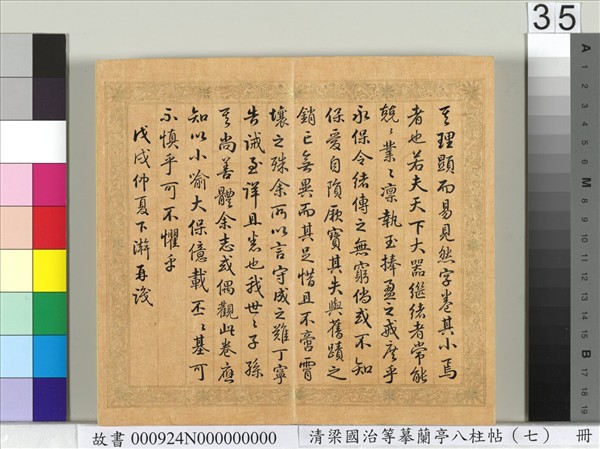 其理顯而易見然字卷其小焉
者也若夫天下大器繼緒者常能
兢〻業〻凜執玉捧盈之戒庶乎
永保令緒傳之無窮倘或不知
保愛自隕厥寶其失與舊蹟之
銷亡無異而其足惜且不啻霄
壤之殊余所以言守成之難丁寧
告誡至詳且悉也我世〻子孫
其尚善體余志或偶觀此卷應
知以小喻大保億載丕〻基可
不慎乎可不懼乎
戊戌仲夏下澣再識
35
A 1 2 3 4 5 6 M 8 9 10 11 12 13 14 15 B 17 18 19
故書 000924N000000000 清梁國治等摹蘭亭八柱帖（七） 冊